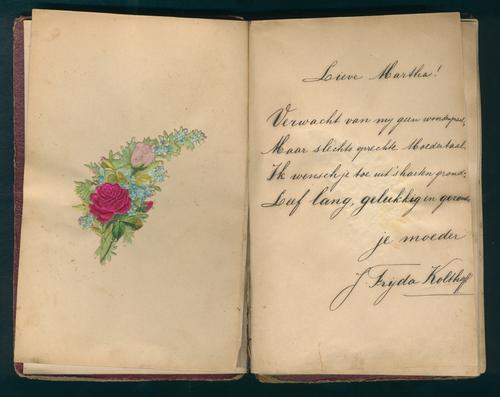 Lieve Martha!
Verwacht van my geen
Maar slechts oprechte Moedertaal.
Ik wensch je toe uit's harten grond:
Leef lang, gelukkig en gezond
je moeder
J. Frijda Kolthoff